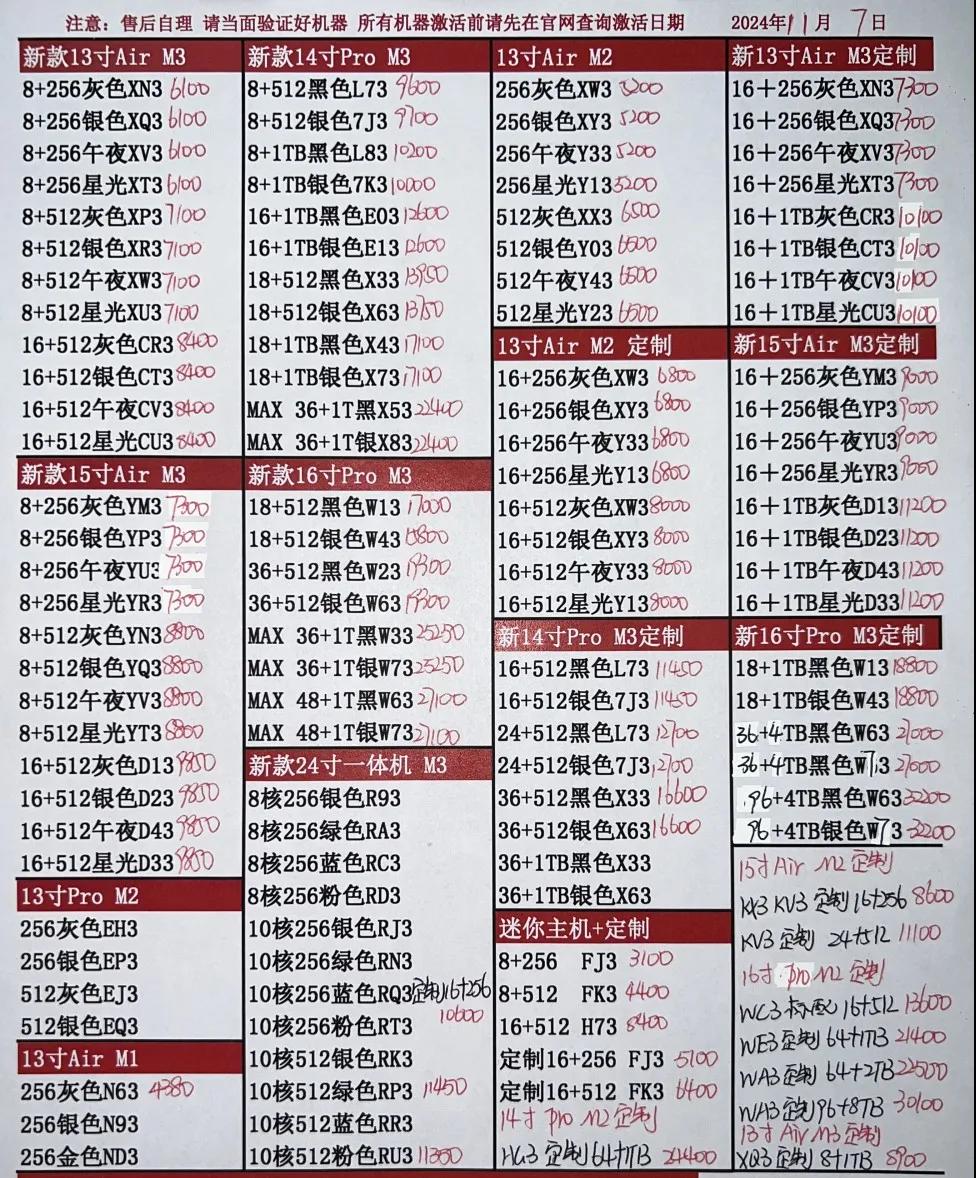 注意: 售后自理 请当面验证好机器 所有机器激活前请先在官网查询激活日期 2024年11月7日
新款13寸Air M3
8+256灰色XN3 6100
8+256银色XQ3 6100
8+256午夜XV3 6100
8+256星光XT3 6100
8+512灰色XP3 7100
8+512银色XR3 7100
8+512午夜XW3 7100
8+512星光XU3 7100
16+512灰色CR3 8400
16+512银色CT3 8400
16+512午夜CV3 8400
16+512星光CU3 8400
新款15寸Air M3
8+256灰色YM3 7300
8+256银色YP3 7300
8+256午夜YU3 7300
8+256星光YR3 7300
8+512灰色YN3 8800
8+512银色YQ3 8800
8+512午夜YV3 8800
8+512星光YT3 8800
16+512灰色D13 9850
16+512银色D23 9850
16+512午夜D43 9850
16+512星光D33 9850
13寸Pro M2
256灰色EH3
256银色EP3
512灰色EJ3
512银色EQ3
13寸Air M1
256灰色N63 4380
256银色N93
256金色ND3
新款14寸Pro M3
8+512黑色L73 9600
8+512银色7J3 9700
8+1TB黑色L83 10200
8+1TB银色7K3 10000
16+1TB黑色E03 12600
16+1TB银色E13 12600
18+512黑色X33 13950
18+512银色X63 13750
18+1TB黑色X43 17100
18+1TB银色X73 17100
MAX 36+1T黑X53 22400
MAX 36+1T银X83 22400
新款16寸Pro M3
18+512黑色W13 17000
18+512银色W43
36+512黑色W23 19300
36+512银色W63 19300
MAX 36+1T黑W33 25250
MAX 36+1T银W73 25250
MAX 48+1T黑W63 27100
MAX 48+1T银W73 27100
新款24寸一体机 M3
8核256银色R93
8核256绿色RA3
8核256蓝色RC3
8核256粉色RD3
10核256银色RJ3
10核256绿色RN3
10核256蓝色RQ3 定制16+256
10核256粉色RT3 10600
10核512银色RK3
10核512绿色RP3 11450
10核512蓝色RR3
10核512粉色RU3 11300
13寸Air M2
256灰色XW3 5200
256银色XY3 5200
256午夜Y33 5200
256星光Y13 5200
512灰色XX3 6500
512银色Y03 6500
512午夜Y43 6500
512星光Y23 6500
13寸Air M2 定制
16+256灰色XW3 6800
16+256银色XY3 6800
16+256午夜Y33 6800
16+256星光Y13 6800
16+512灰色XW3 8000
16+512银色XY3 8000
16+512午夜Y33 8000
16+512星光Y13 8000
新14寸Pro M3定制
16+512黑色L73 11450
16+512银色7J3 11450
24+512黑色L73 12700
24+512银色7J3 12700
36+512黑色X33 16600
36+512银色X63 16600
36+1TB黑色X33
36+1TB银色X63
迷你主机+定制
8+256 FJ3 3100
8+512 FK3 4400
16+512 H73 8400
定制16+256 FJ3 5100
定制16+512 FK3 6400
14寸 Pro M2 定制
HG3 定制 64+1TB 24400
新13寸Air M3定制
16+256灰色XN3 7300
16+256银色XQ3 7300
16+256午夜XV3 7300
16+256星光XT3 7300
16+1TB灰色CR3 10100
16+1TB银色CT3 10100
16+1TB午夜CV3 10100
16+1TB星光CU3 10100
新15寸Air M3定制
16+256灰色YM3 9000
16+256银色YP3 9000
16+256午夜YU3 9000
16+256星光YR3 9000
16+1TB灰色D13 11200
16+1TB银色D23 11200
16+1TB午夜D43 11200
16+1TB星光D33 11200
新16寸Pro M3定制
18+1TB黑色W13 18800
18+1TB银色W43 18800
36+4TB黑色W63 27000
36+4TB黑色W73 27000
96+4TB黑色W63 32200
96+4TB银色W73 32200
15寸Air M2 定制
KX3 KV3 定制 16+256 8600
KV3 定制 24+512 11100
16寸 Pro M2 定制
WC3 标配 16+512 13600
WE3 定制 64+1TB 21400
WA3 定制 64+2TB 22500
WA3 定制 96+8TB 30100
13寸 Air M3 定制
XQ3 定制 8+1TB 8900